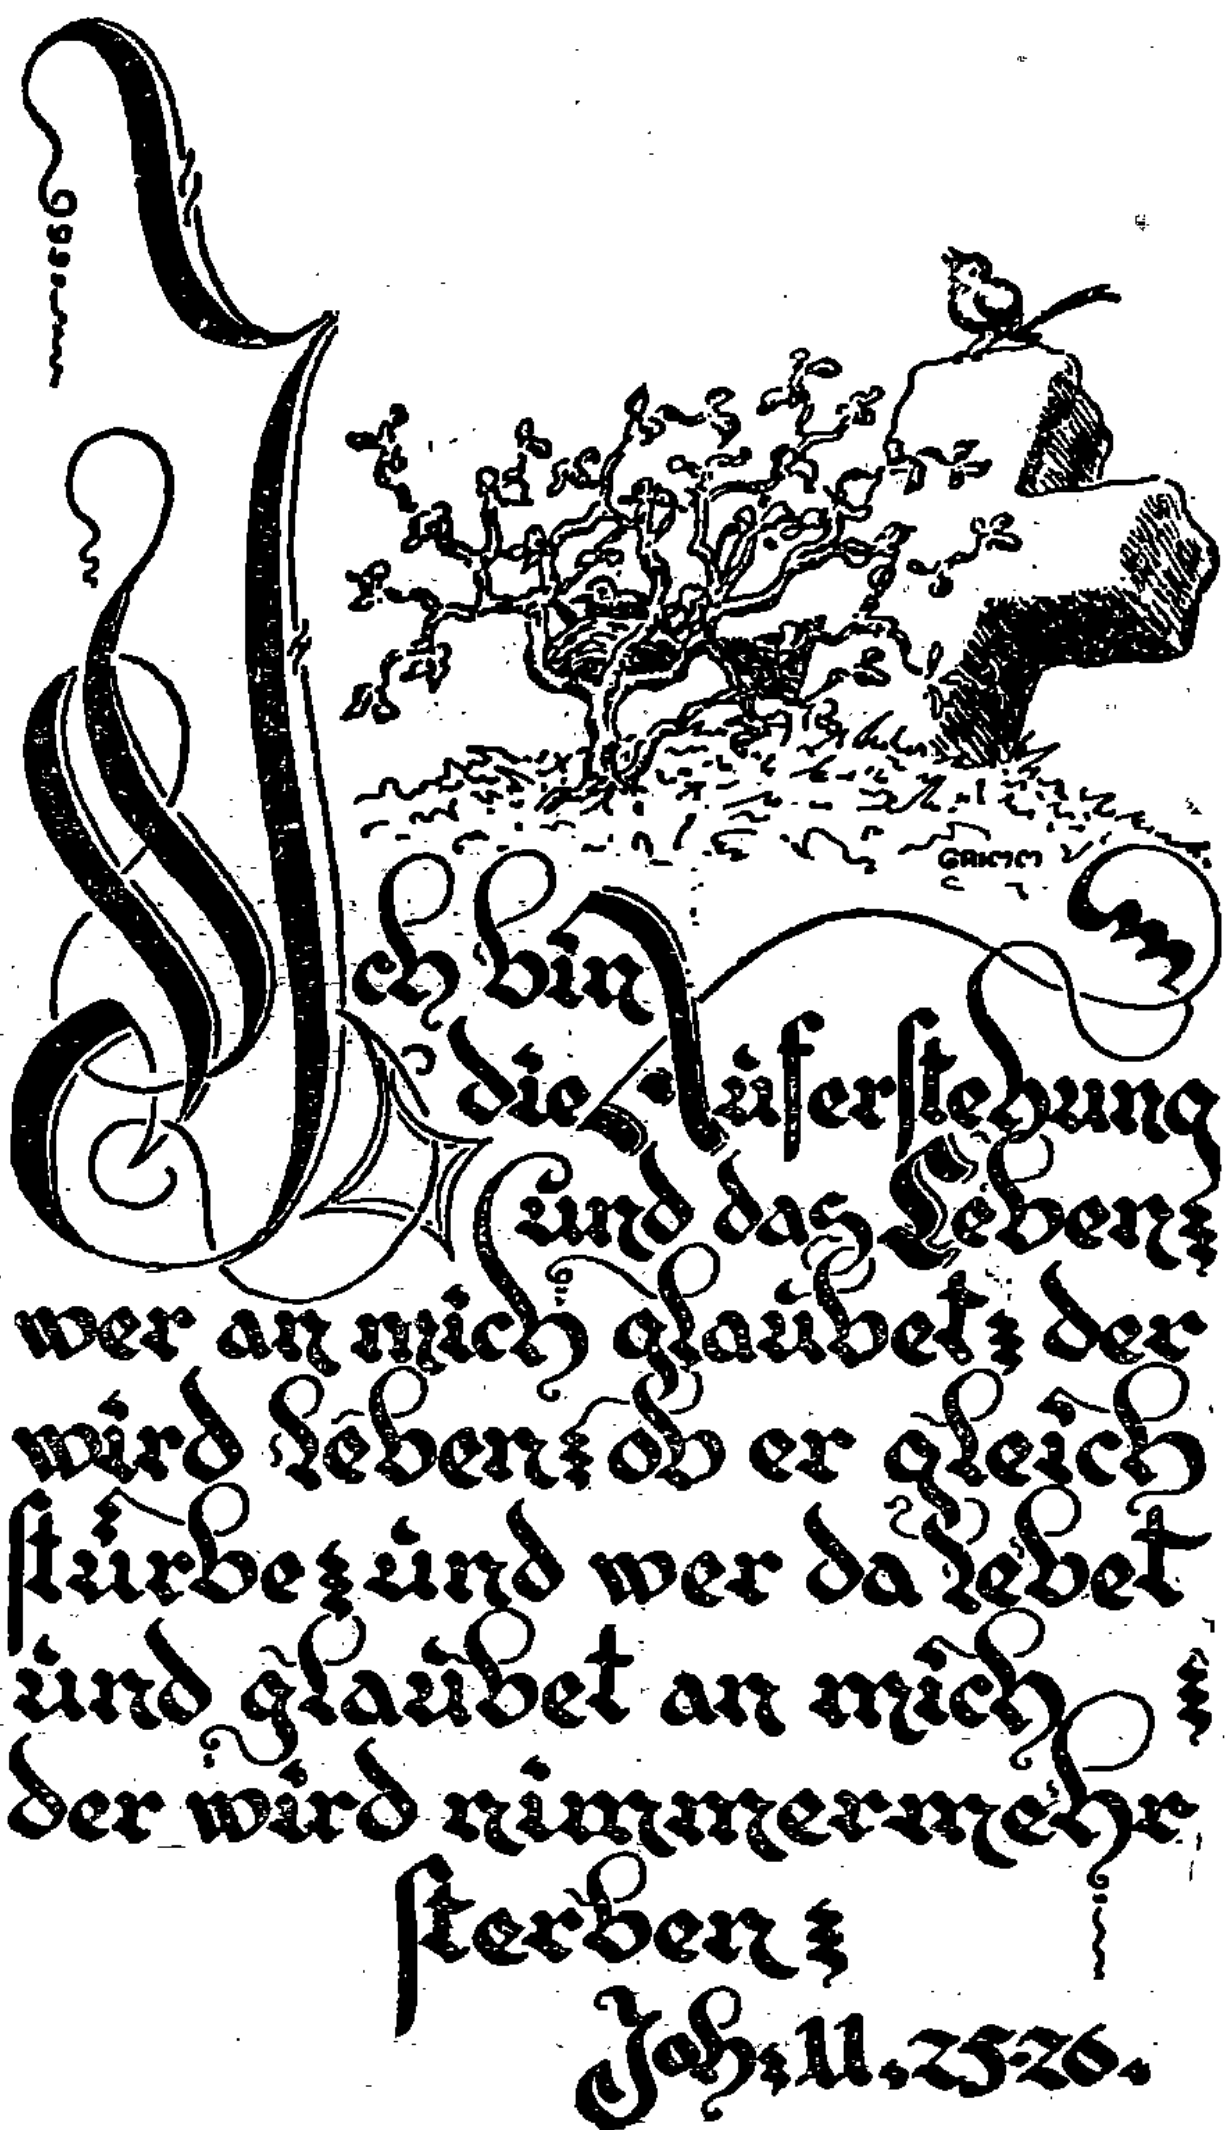 GRIMM
Ich bin
die Auferstehung
und das Leben,
wer an mich glaubet, der
wird leben, ob er gleich
stürbe, und wer da lebet
und glaubet an mich,
der wird nimmermehr
sterben,
Joh, 11. 25-26.